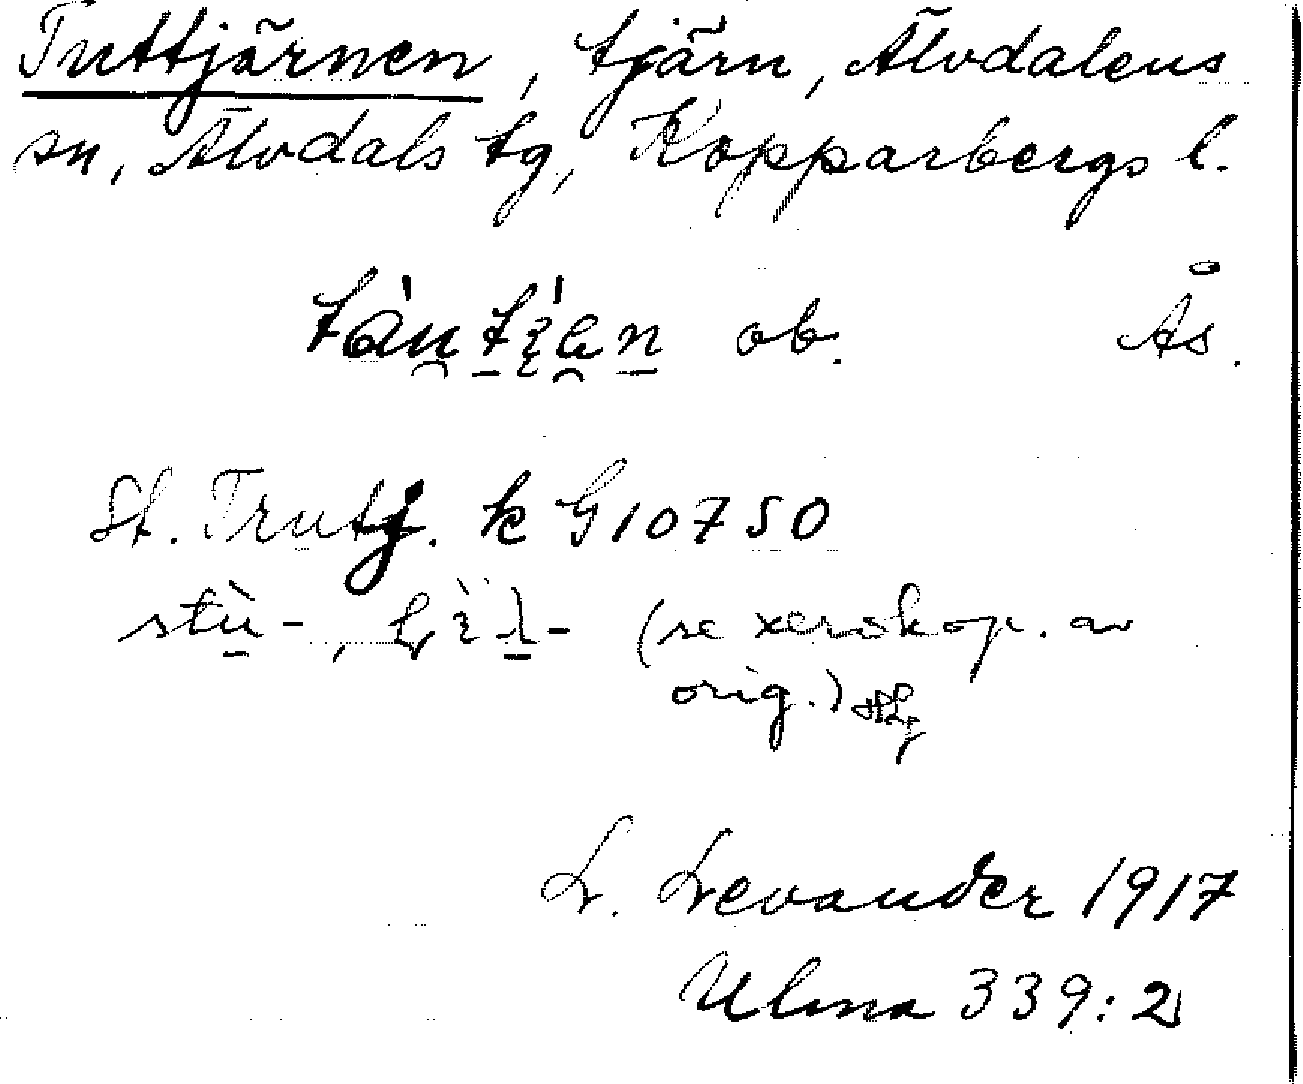 Tuttjärnen, tjärn, Älvdalens
sn, Älvdals tg, Kopparbergs l.
ob. Ås.
St. Trutj. k G10750
stù-, (se xerokop. av
orig.)
L. Levander 1917
Ulma 339:2